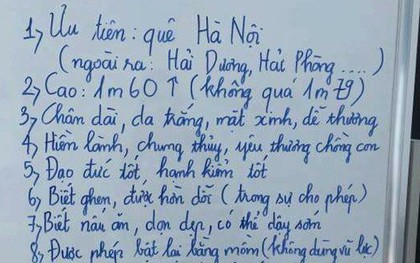 1, Ưu tiên: quê Hà Nội
(ngoài ra: Hải Dương, Hải Phòng ....)
2, Cao: 1m60 ↑ (không quá 1m79)
3, Chân dài, da trắng, mặt xinh, dễ thương
4, Hiền lành, chung thủy, yêu thương chồng con
5, Đạo đức tốt, hạnh kiểm tốt
6, Biết ghen, được hờn dỗi (trong sự cho phép)
7, Biết nấu ăn, dọn dẹp, có thể dậy sớm
8, Được phép bật lại bằng mồm (không dùng vũ lực)